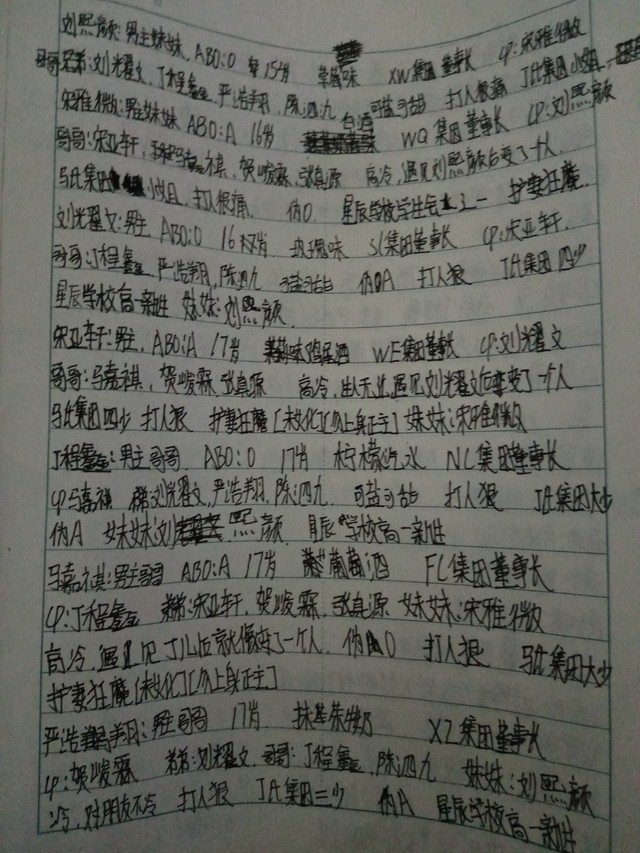 刘熙颜:男主妹妹, ABO:O 15岁 草莓味 XW集团董事长 cp:宋雅微
哥哥:刘耀文,丁程鑫,严浩翔,陈泗九 可盐可甜 打人很痛 J氏集团小姐
宋雅微:男主妹妹 ABO:A 16岁 白酒 WQ集团董事长 cp:刘熙颜
哥哥:宋亚轩,马嘉祺,贺峻霖,张真源 高冷,遇见刘熙颜后变了个人
马氏集团小姐,打人很痛 伪O 星辰学校学生会之一 护妻狂魔
刘耀文:男主 ABO:O 16岁 玫瑰味 SL集团董事长 cp:宋亚轩
哥哥:丁程鑫 严浩翔,陈泗九 可盐可甜 伪A 打人狠 J氏集团四少
星辰学校高一新生 妹妹:刘熙颜
宋亚轩:男主,ABO:A 17岁 鸡尾酒 WE集团董事长 cp:刘耀文
哥哥:马嘉祺,贺峻霖,张真源 高冷,遇见刘耀文后变了一个人
马氏集团四少 打人狠 护妻狂魔[未女化了勿上身正主] 妹妹:宋雅微
丁程鑫:男主哥哥 ABO:O 17岁 柠檬汽水 NC集团董事长
cp马嘉祺 弟弟:刘耀文,严浩翔,陈泗九 可盐可甜 打人狠 J氏集团大少
伪A 妹妹:刘熙颜 星辰学校高一新生
马嘉祺:男主哥哥 ABO:A 17岁 葡萄酒 FC集团董事长
cp:丁程鑫 弟弟:宋亚轩,贺峻霖,张真源 妹妹:宋雅微
高冷,遇见丁儿后就像变了一个人 伪O 打人狠 马氏集团大少
护妻狂魔[未女化了勿上身正主]
严浩翔:男主哥哥 17岁 抹茶牛奶 XZ集团董事长
cp:贺峻霖 弟弟:刘耀文 哥哥:丁程鑫,陈泗九 妹妹:刘熙颜
冷,对朋友不冷 打人狠 J氏集团三少 伪A 星辰学校高一新生